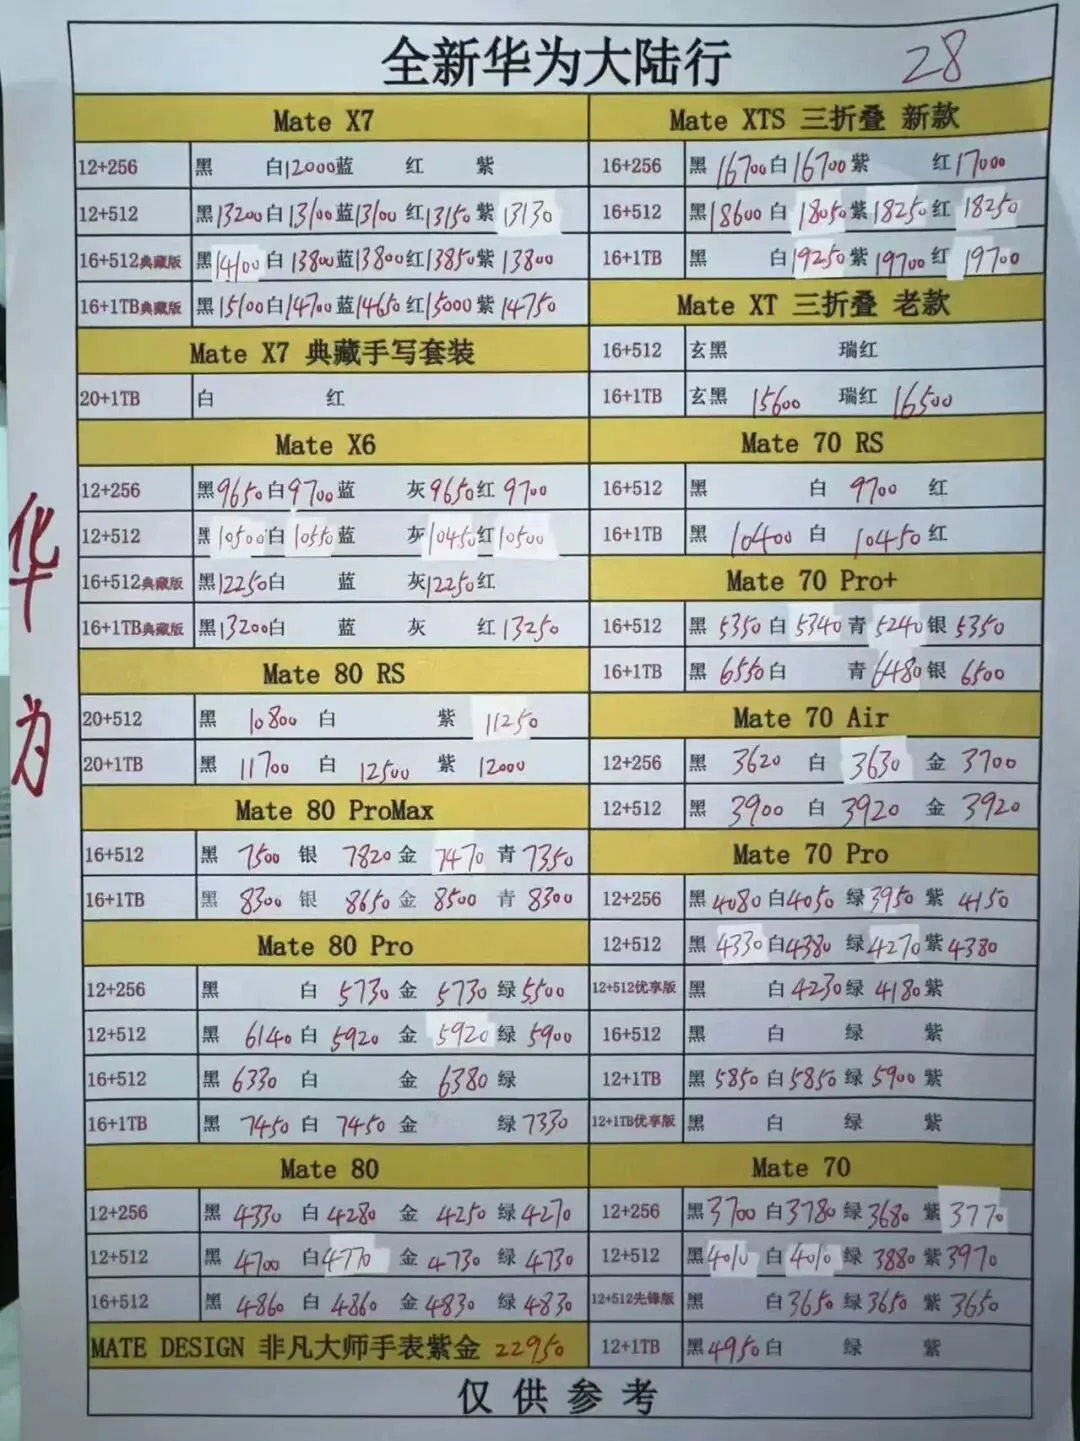 全新华为大陆行 28
华为
Mate X7
12+256 黑 白12000蓝 红 紫
12+512 黑13200白13100蓝13100红13150紫13130
16+512典藏版 黑14100白13800蓝13800红13850紫13800
16+1TB典藏版 黑15100白14700蓝14650红15000紫14750
Mate X7 典藏手写套装
20+1TB 白 红
Mate X6
12+256 黑9650白9700蓝 灰9650红9700
12+512 黑10500白10550蓝 灰10450红10500
16+512典藏版 黑12250白 蓝 灰12250红
16+1TB典藏版 黑13200白 蓝 灰 红13250
Mate 80 RS
20+512 黑 10800 白 紫 11250
20+1TB 黑 11700 白 12500 紫 12000
Mate 80 ProMax
16+512 黑 7500 银 7820 金 7470 青 7350
16+1TB 黑 8300 银 8650 金 8500 青 8300
Mate 80 Pro
12+256 黑 白 5730 金 5730 绿 5500
12+512 黑 6140 白 5920 金 5920 绿 5900
16+512 黑 6330 白 金 6380 绿
16+1TB 黑 7450 白 7450 金 绿 7330
Mate 80
12+256 黑 4330 白 4280 金 4250 绿 4270
12+512 黑 4700 白 4770 金 4730 绿 4730
16+512 黑 4860 白 4860 金 4830 绿 4830
MATE DESIGN 非凡大师手表紫金 22950
Mate XTS 三折叠 新款
16+256 黑 16700 白 16700 紫 红 17000
16+512 黑 18600 白 18050 紫 18250 红 18250
16+1TB 黑 白 19250 紫 19700 红 19700
Mate XT 三折叠 老款
16+512 玄黑 瑞红
16+1TB 玄黑 15600 瑞红 16500
Mate 70 RS
16+512 黑 白 9700 红
16+1TB 黑 10400 白 10450 红
Mate 70 Pro+
16+512 黑 5350 白 5340 青 5240 银 5350
16+1TB 黑 6550 白 青 6480 银 6500
Mate 70 Air
12+256 黑 3620 白 3630 金 3700
12+512 黑 3900 白 3920 金 3920
Mate 70 Pro
12+256 黑 4080 白 4050 绿 3950 紫 4150
12+512 黑 4330 白 4380 绿 4270 紫 4380
12+512优享版 黑 白 4230 绿 4180 紫
16+512 黑 白 绿 紫
12+1TB 黑 5850 白 5850 绿 5900 紫
12+1TB优享版 黑 白 绿 紫
Mate 70
12+256 黑 3700 白 3780 绿 3680 紫 3770
12+512 黑 4010 白 4010 绿 3880 紫 3970
12+512先锋版 黑 白 3650 绿 3650 紫 3650
12+1TB 黑 4950 白 绿 紫
仅供参考